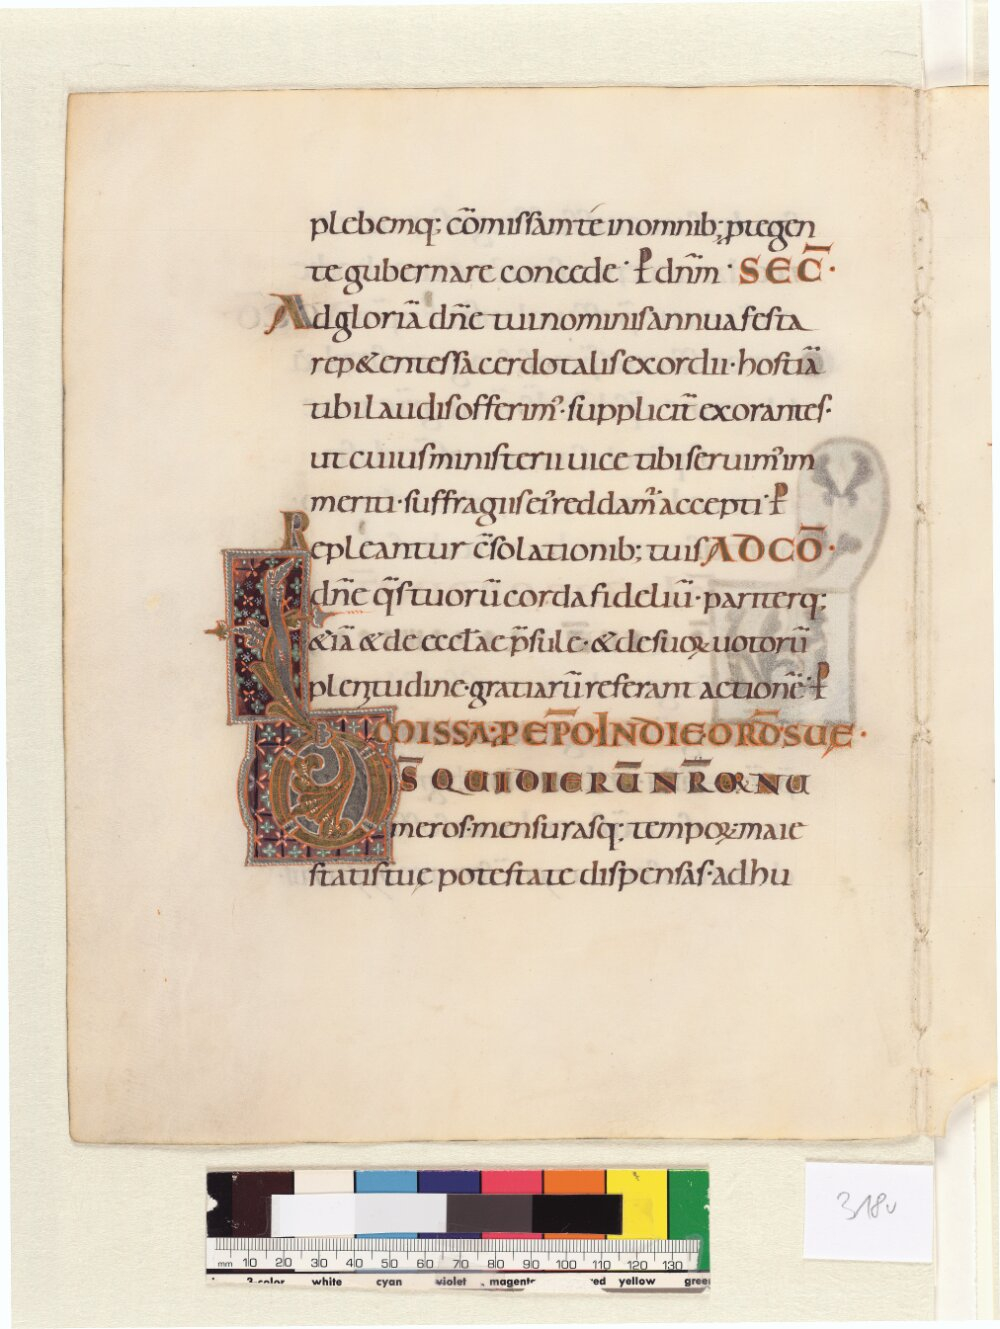 plebemq; cōmissāmte inomnib; ꝑtegen
te gubernare concede · ꝑ dn̄m · SEC̄ ·
Adgloriā dn̄e tui nominis annua festa
rep&entes sacerdotalis exordii · hostiā
tibi laudis offerim᾽ · supplicit̄ exorantes ·
ut cuius ministerii uice tibi seruim᾽ im
meriti · suffragiis ei᾽ reddam᾽ accepti · ꝑ
Repleantur c̄solationib; tuis AD CŌ ·
dn̄e q̄s tuorū corda fideliū · pariterq;
&iā & de eccl̄ae p̄sule · & de suoꝝ uotorū
plenitudine · gratiarū referant actionē · ꝑ
MISSA · P EP̄O · IN DIE ORD̄ SUE ·
DS̄ QUI DIERŪ NR̄OꝜ NU
meros · mensurasq; tempoꝝ maie
statis tuę potestate dispensas · adhu
318v
mm 10 20 30 40 50 60 70 80 90 100 110 120 130
3-color white cyan violet magenta red yellow green